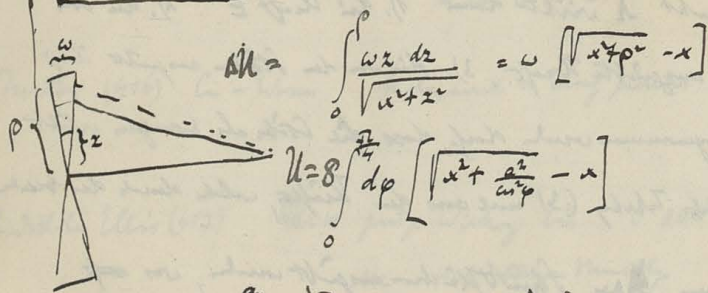 ω
ΔU = ∫₀^ρ ωz dz / √(x²+z²) = ω [√(x²+ρ²) - x]
ρ { } z
U = 8 ∫₀^{π/4} dφ [√(x² + a²/cos²φ) - x]